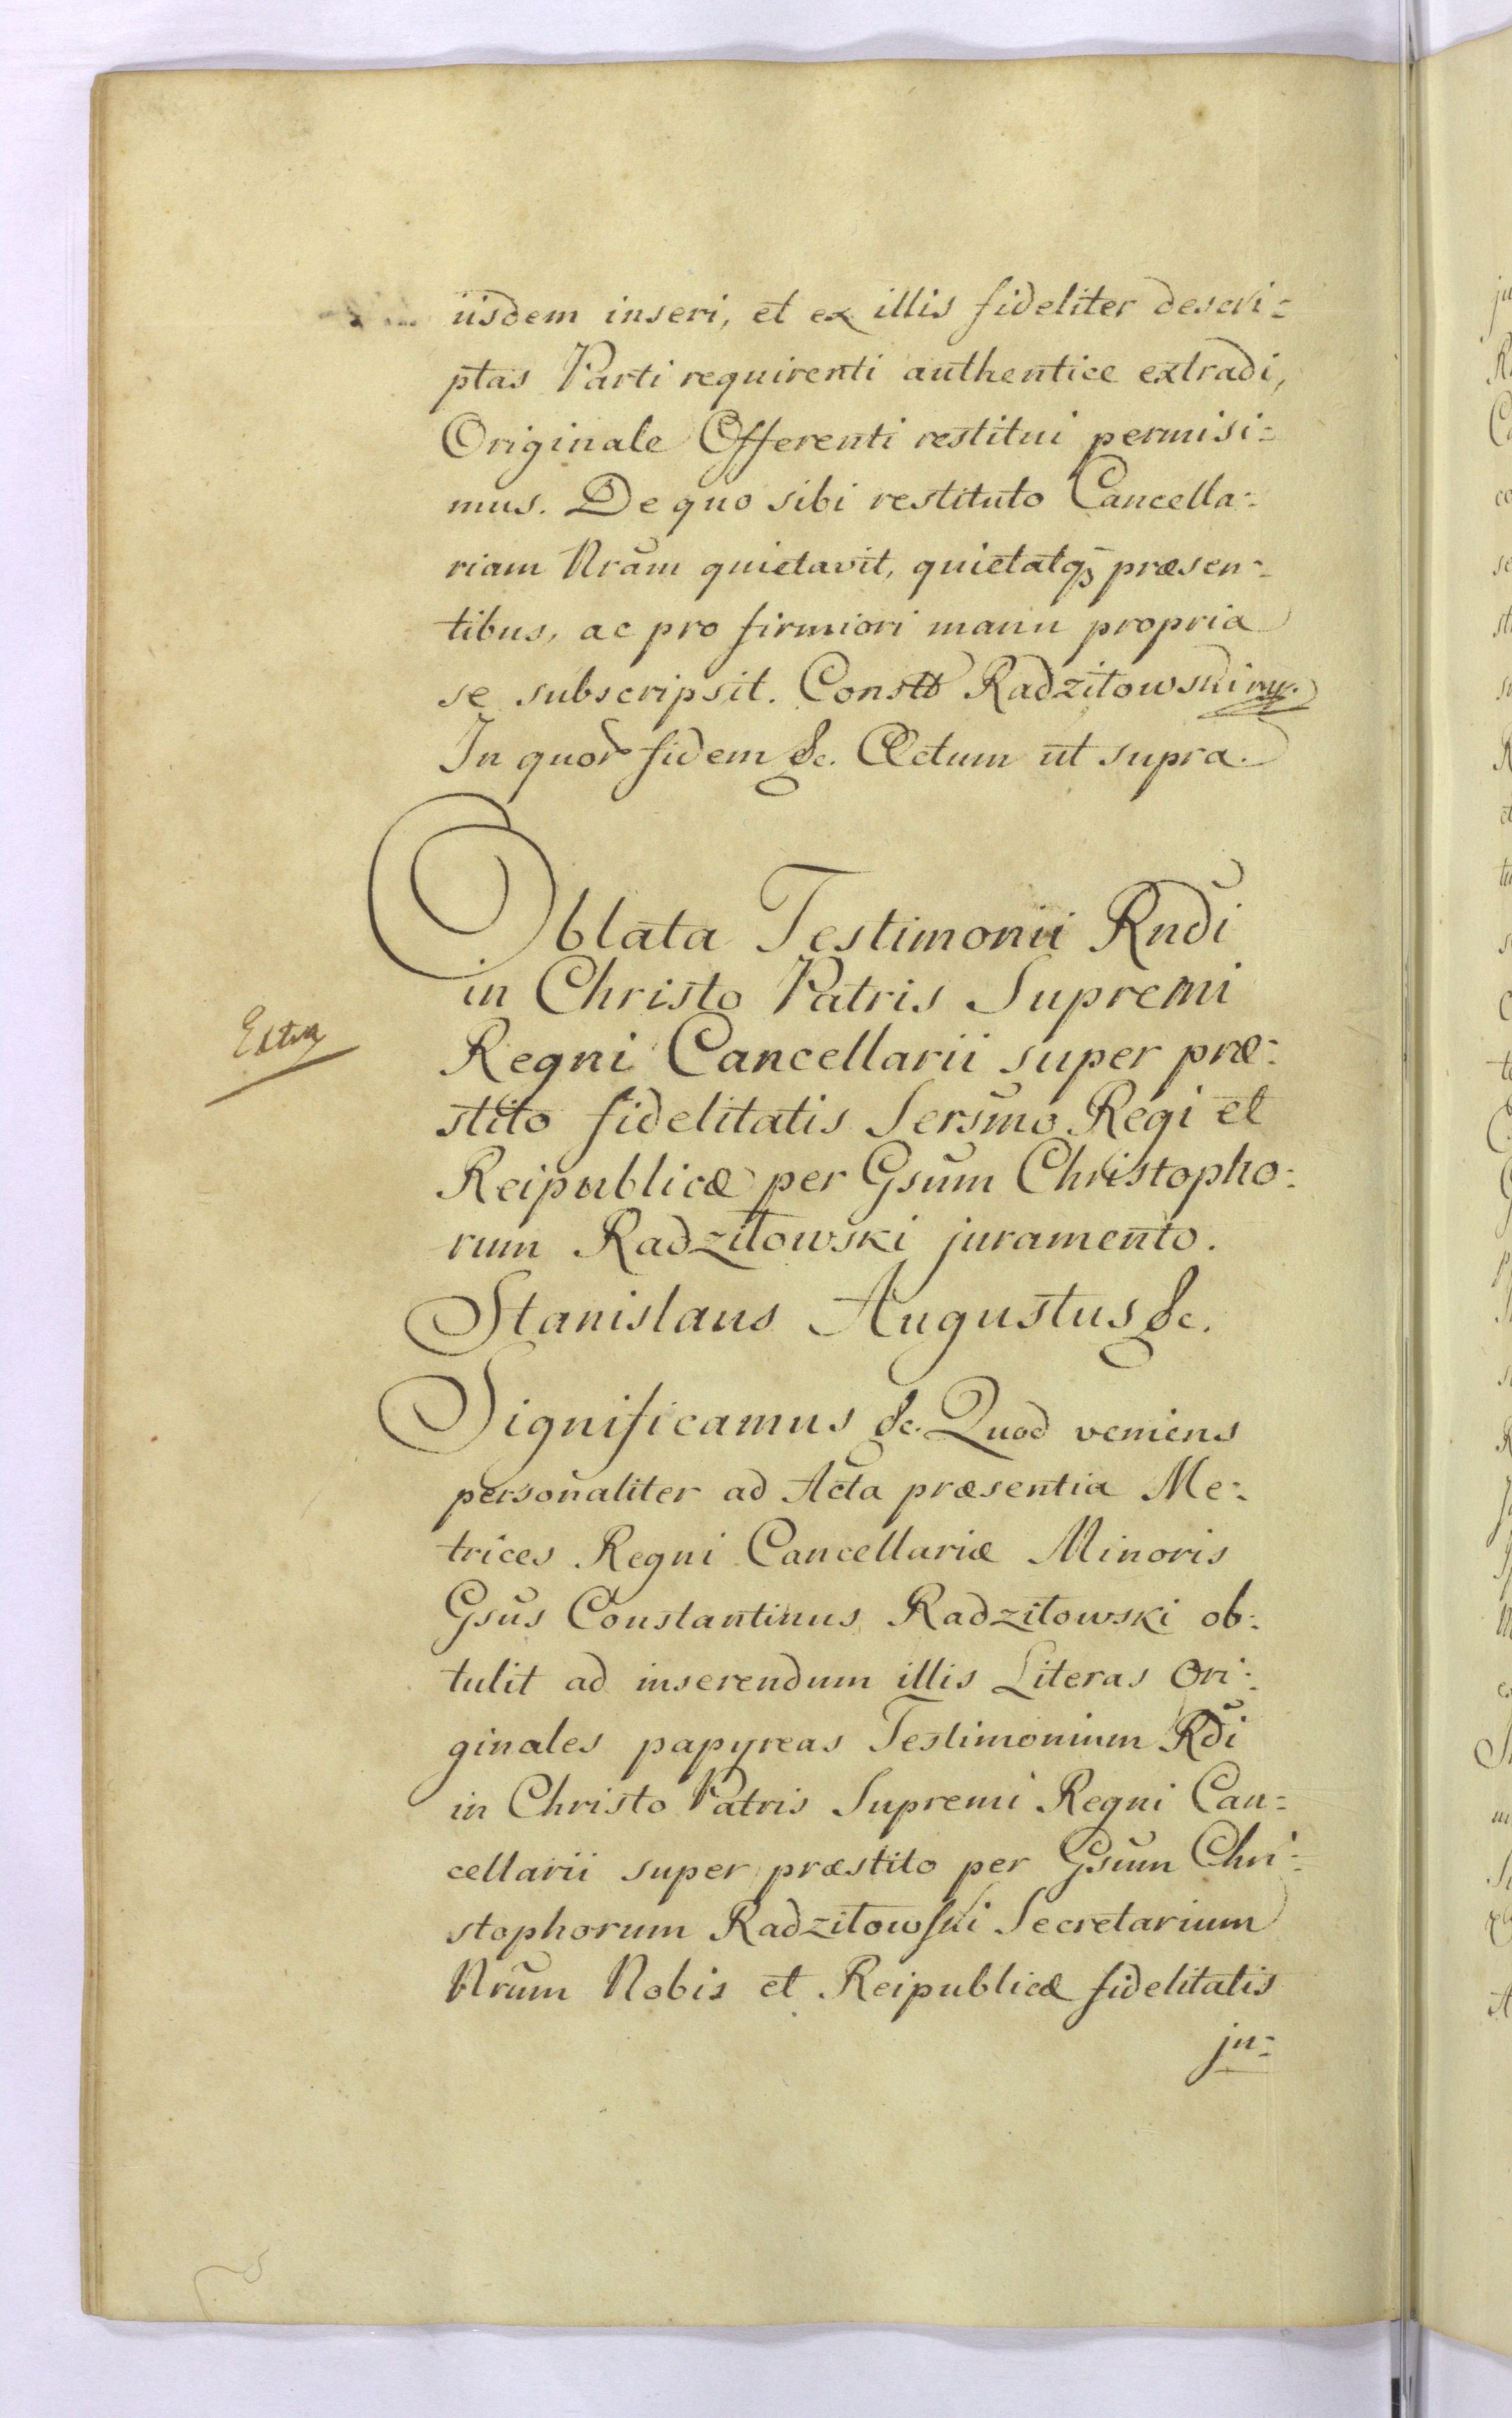 iisdem inseri, et ex illis fideliter descri=
ptas Parti requirenti authentice extradi,
Originale Offerenti restitui permisi=
mus. De quo sibi restituto Cancella=
riam Nram̃ quietavit, quietatqȝ præsen=
tibus, ac pro firmiori manu propria
se subscripsit. Constt Radzitowski mp.
In quor fidem &c. Actum ut supra.
Oblata Testimonii Rndi
in Christo Patris Supremi
Regni Cancellarii super præ=
stito fidelitatis Sersmo Regi et
Reipublicæ per Gsum Christopho=
rum Radzitowski juramento.
Extra
Stanislaus Augustus &c.
Significamus &c. Quod veniens
personaliter ad Acta præsentia Me=
trices Regni Cancellariæ Minoris
Gsus Constantinus Radzitowski ob=
tulit ad inserendum illis Literas Ori=
ginales papyreas Testimonium Rdi
in Christo Patris Supremi Regni Can=
cellarii super præstito per Gsum Chri=
stophorum Radzitowski Secretarium
Nrum Nobis et Reipublicæ fidelitatis
ju=